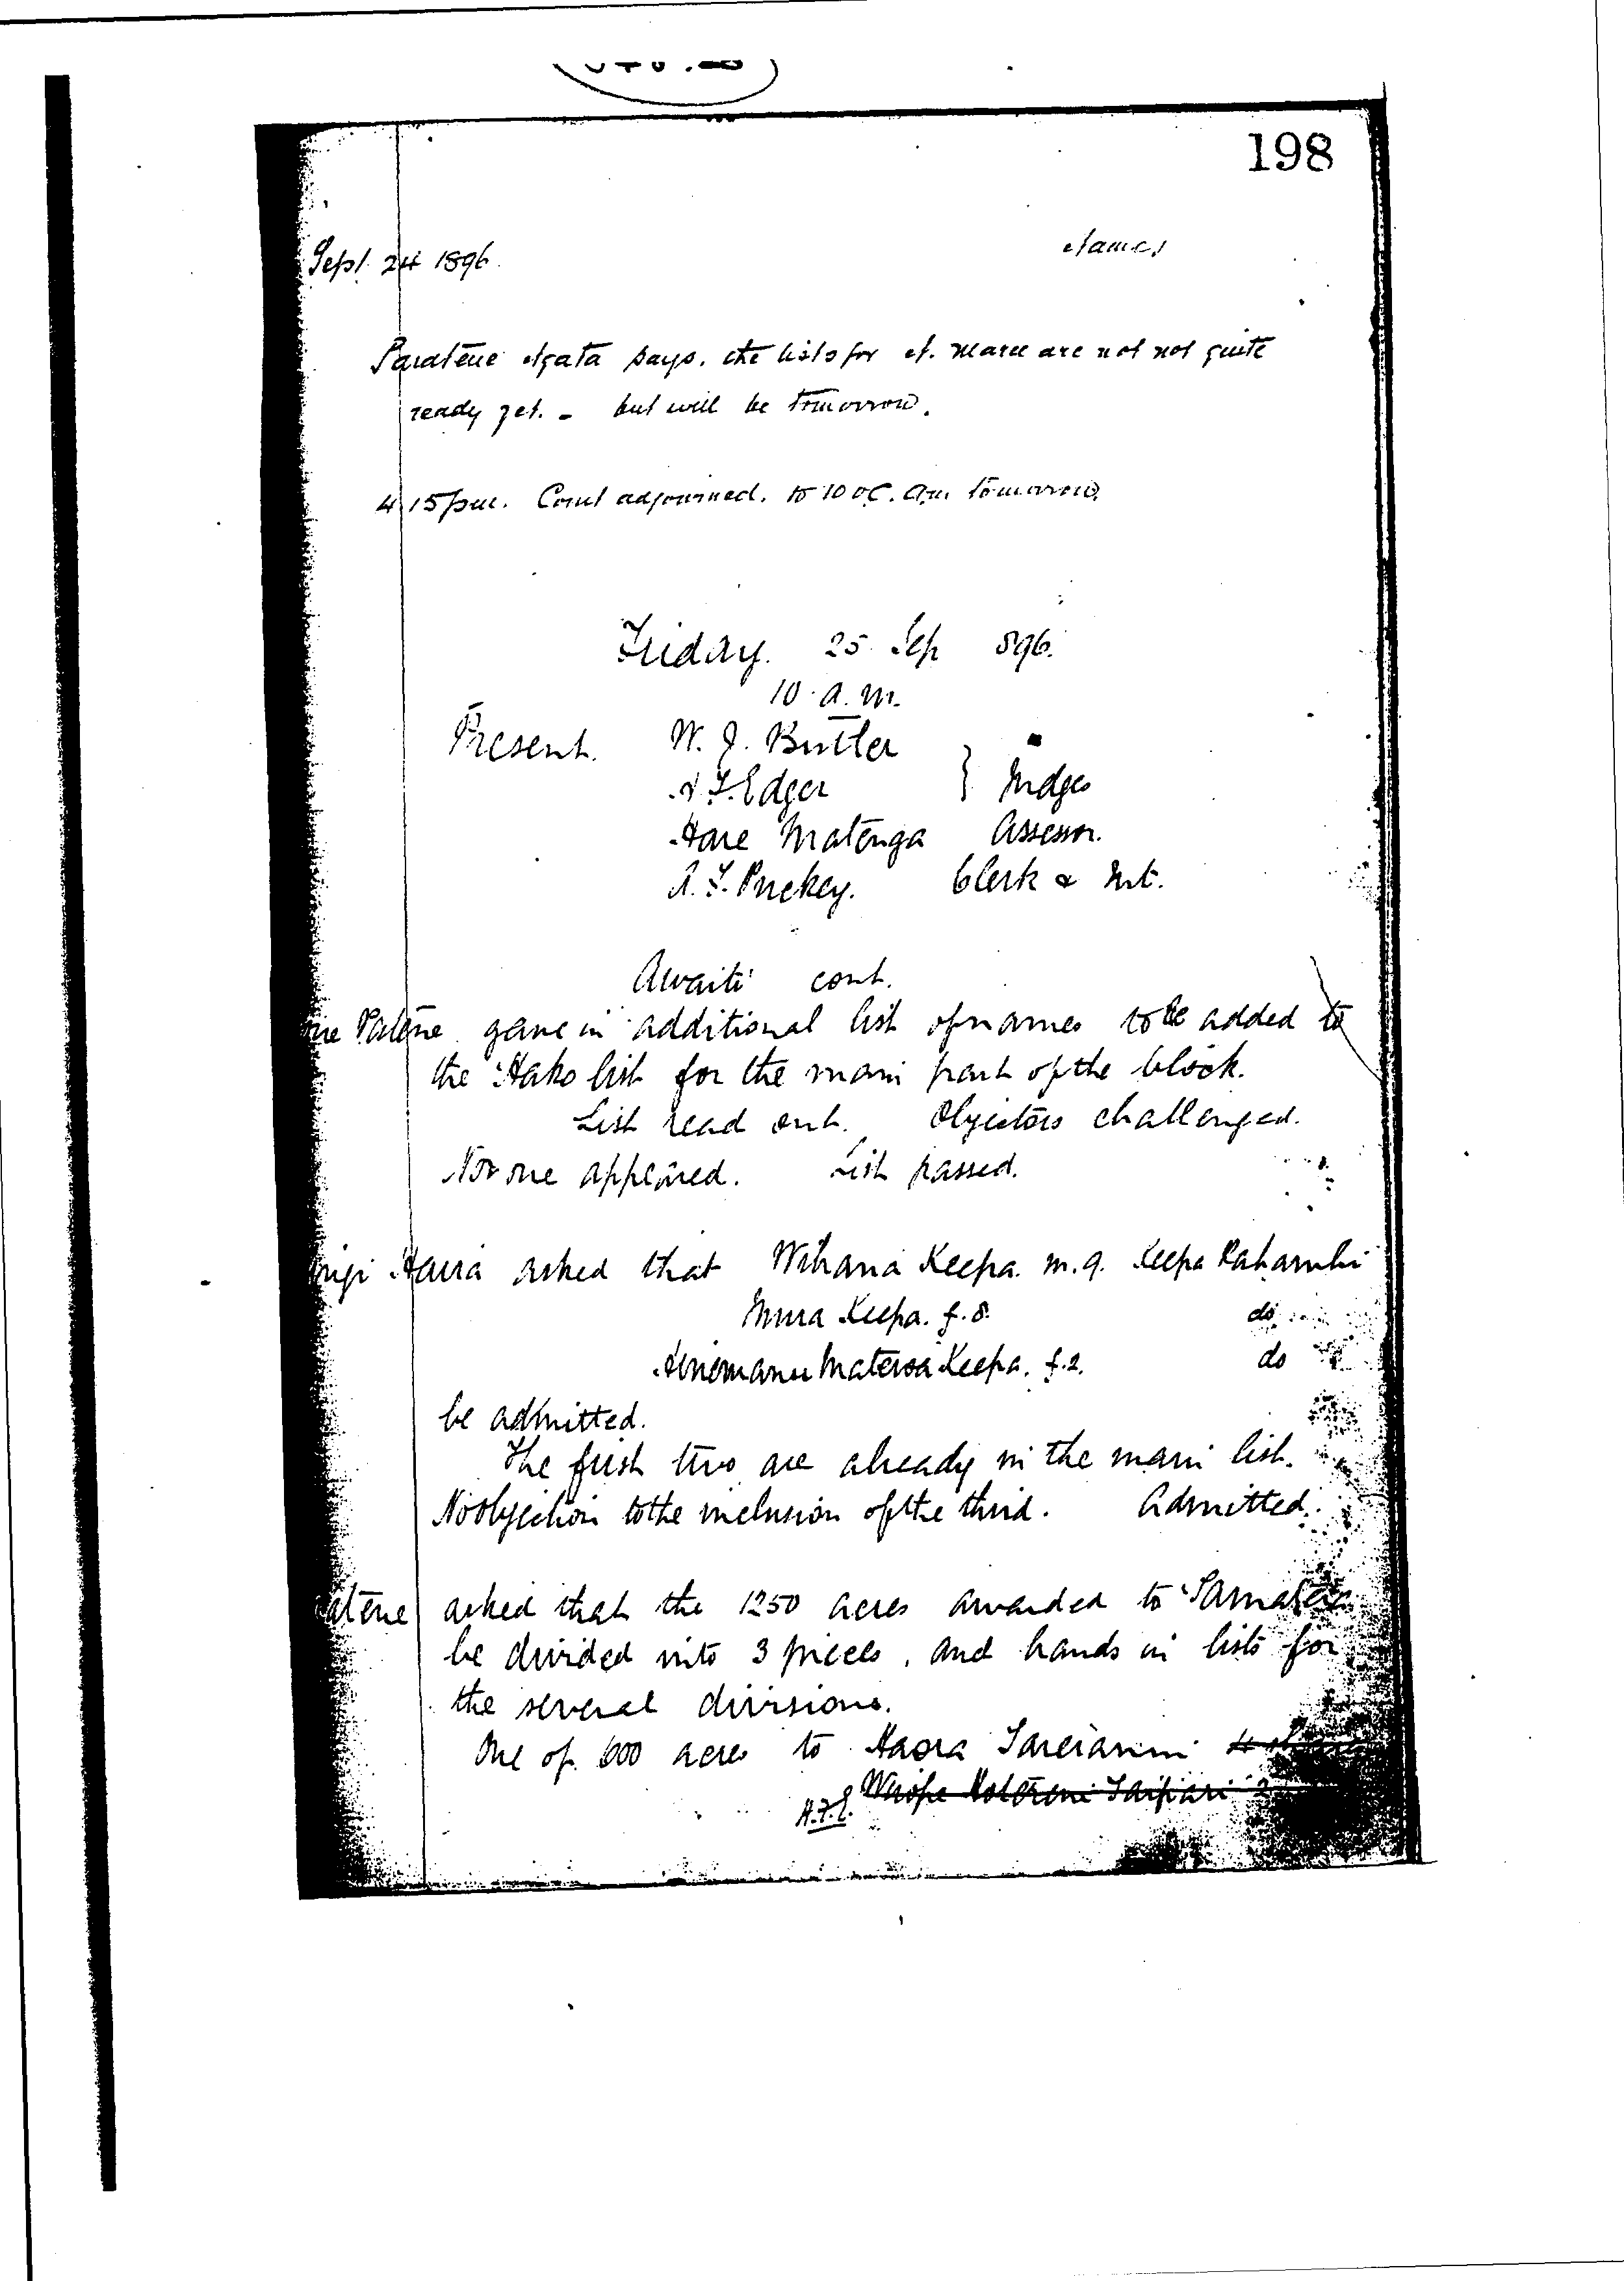 198
Sept. 24 1896.
Names
Paratene Ngata says. the lists for N. Maru are not not quite
ready yet. - but will be tomorrow.
4 15 pm. Court adjourned. to 10 oC. am tomorrow.
Friday. 25 Sep 896.
10 a.m.
Present. W. J. Butler
& F. Edger } Judges
Hare Matenga Assessor.
A. F. Puckey. Clerk & Int.
Awaiti cont.
Patene gave in additional list of names to be added to
the Hako list for the main part of the block.
List read out. Objectors challenged.
No one appeared. List passed.
Haira asked that Wihana Keepa. m. 9. Keepa Raharuhi
Miria Keepa. f. 8. do
Keepa. f. 2. do
be admitted.
The first two are already in the main list.
No objection to the inclusion of the third. Admitted.
asked that the 1250 acres awarded to Tamatera
be divided into 3 pieces, and hands in lists for
the several divisions.
One of 600 acres to Haora Tareranui
Taipari